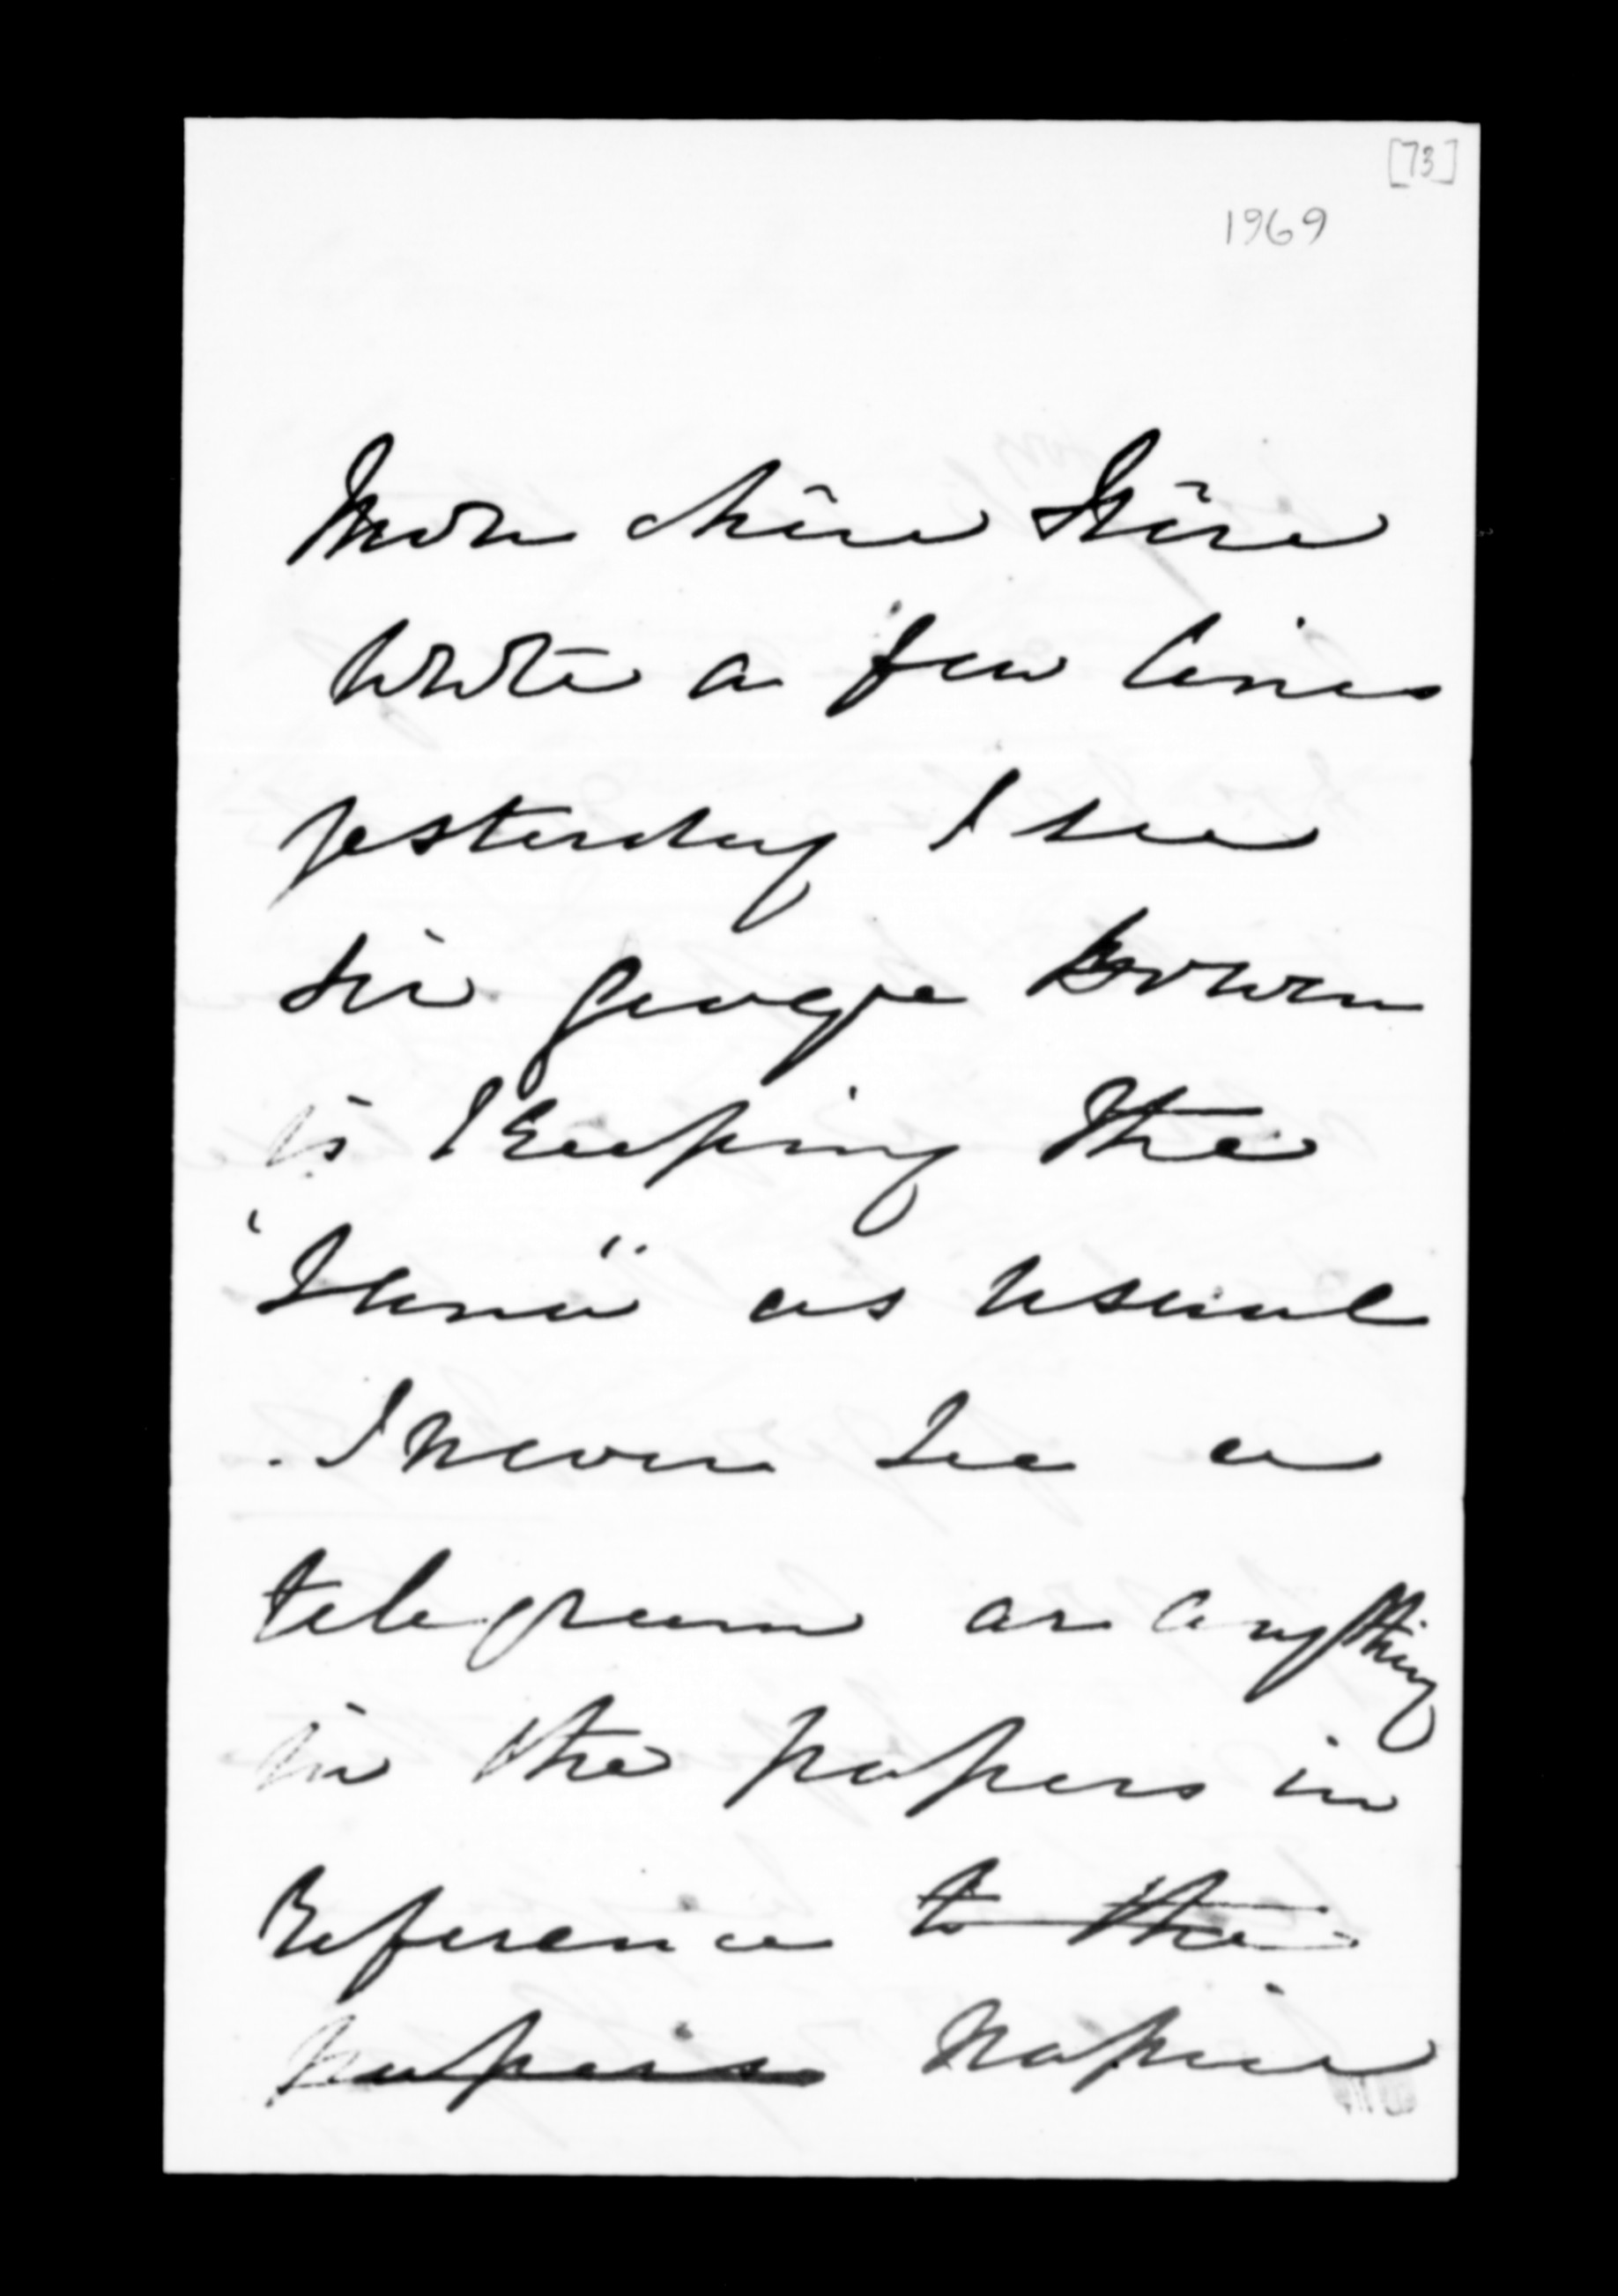 [73]
1969
Mon chère Sïre
Wrote a few lines
yesterday I see
Sir George Bowen
is Keeping the
"Sturt" as usual
. I never see a
telegram or anything
in the papers in
Reference to the
papers Napier